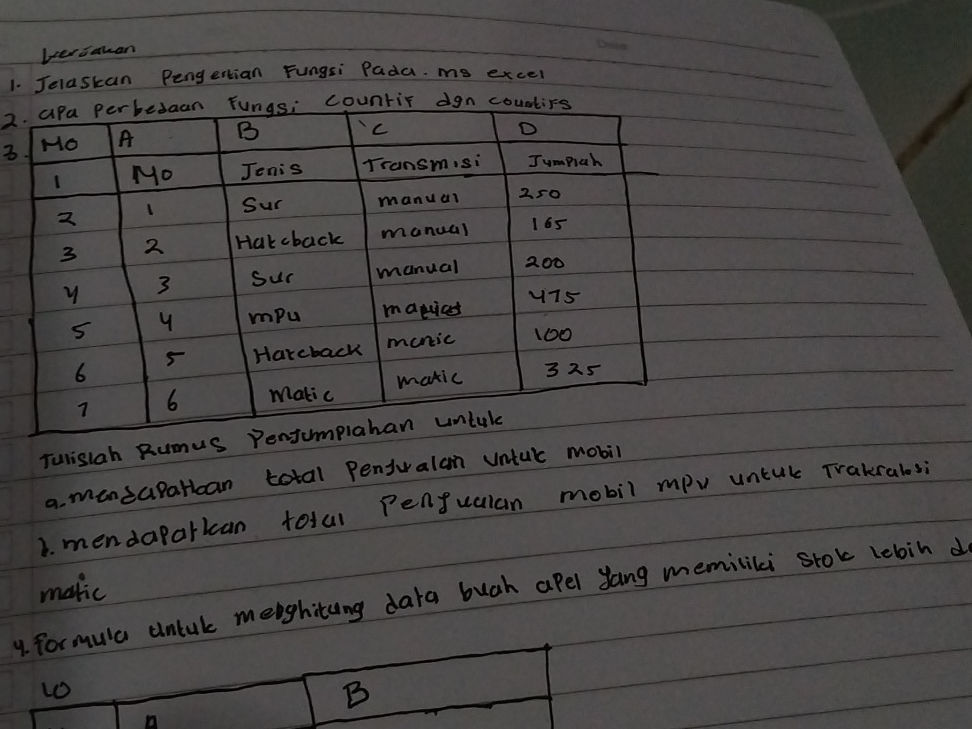 kerjakan
1. Jelaskan Pengertian Fungsi Pada. ms excel
2. apa perbedaan Fungsi Countif dgn countifs
3. No A B C D
1 No Jenis Transmisi Jumplah
2 1 Suv manual 250
3 2 Hatcback manual 165
4 3 Suv manual 200
5 4 mpu 475
6 5 Hatcback matic 100
7 6 Matic matic 325
Tulislah Rumus Penjumplahan untuk
a. mendapatkan total Penjualan untuk mobil
b. mendapatkan total Penjualan mobil mpv untuk Traksaksi
matic
4. formula untuk menghitung data buah apel yang memiliki Stok lebih
10
A B